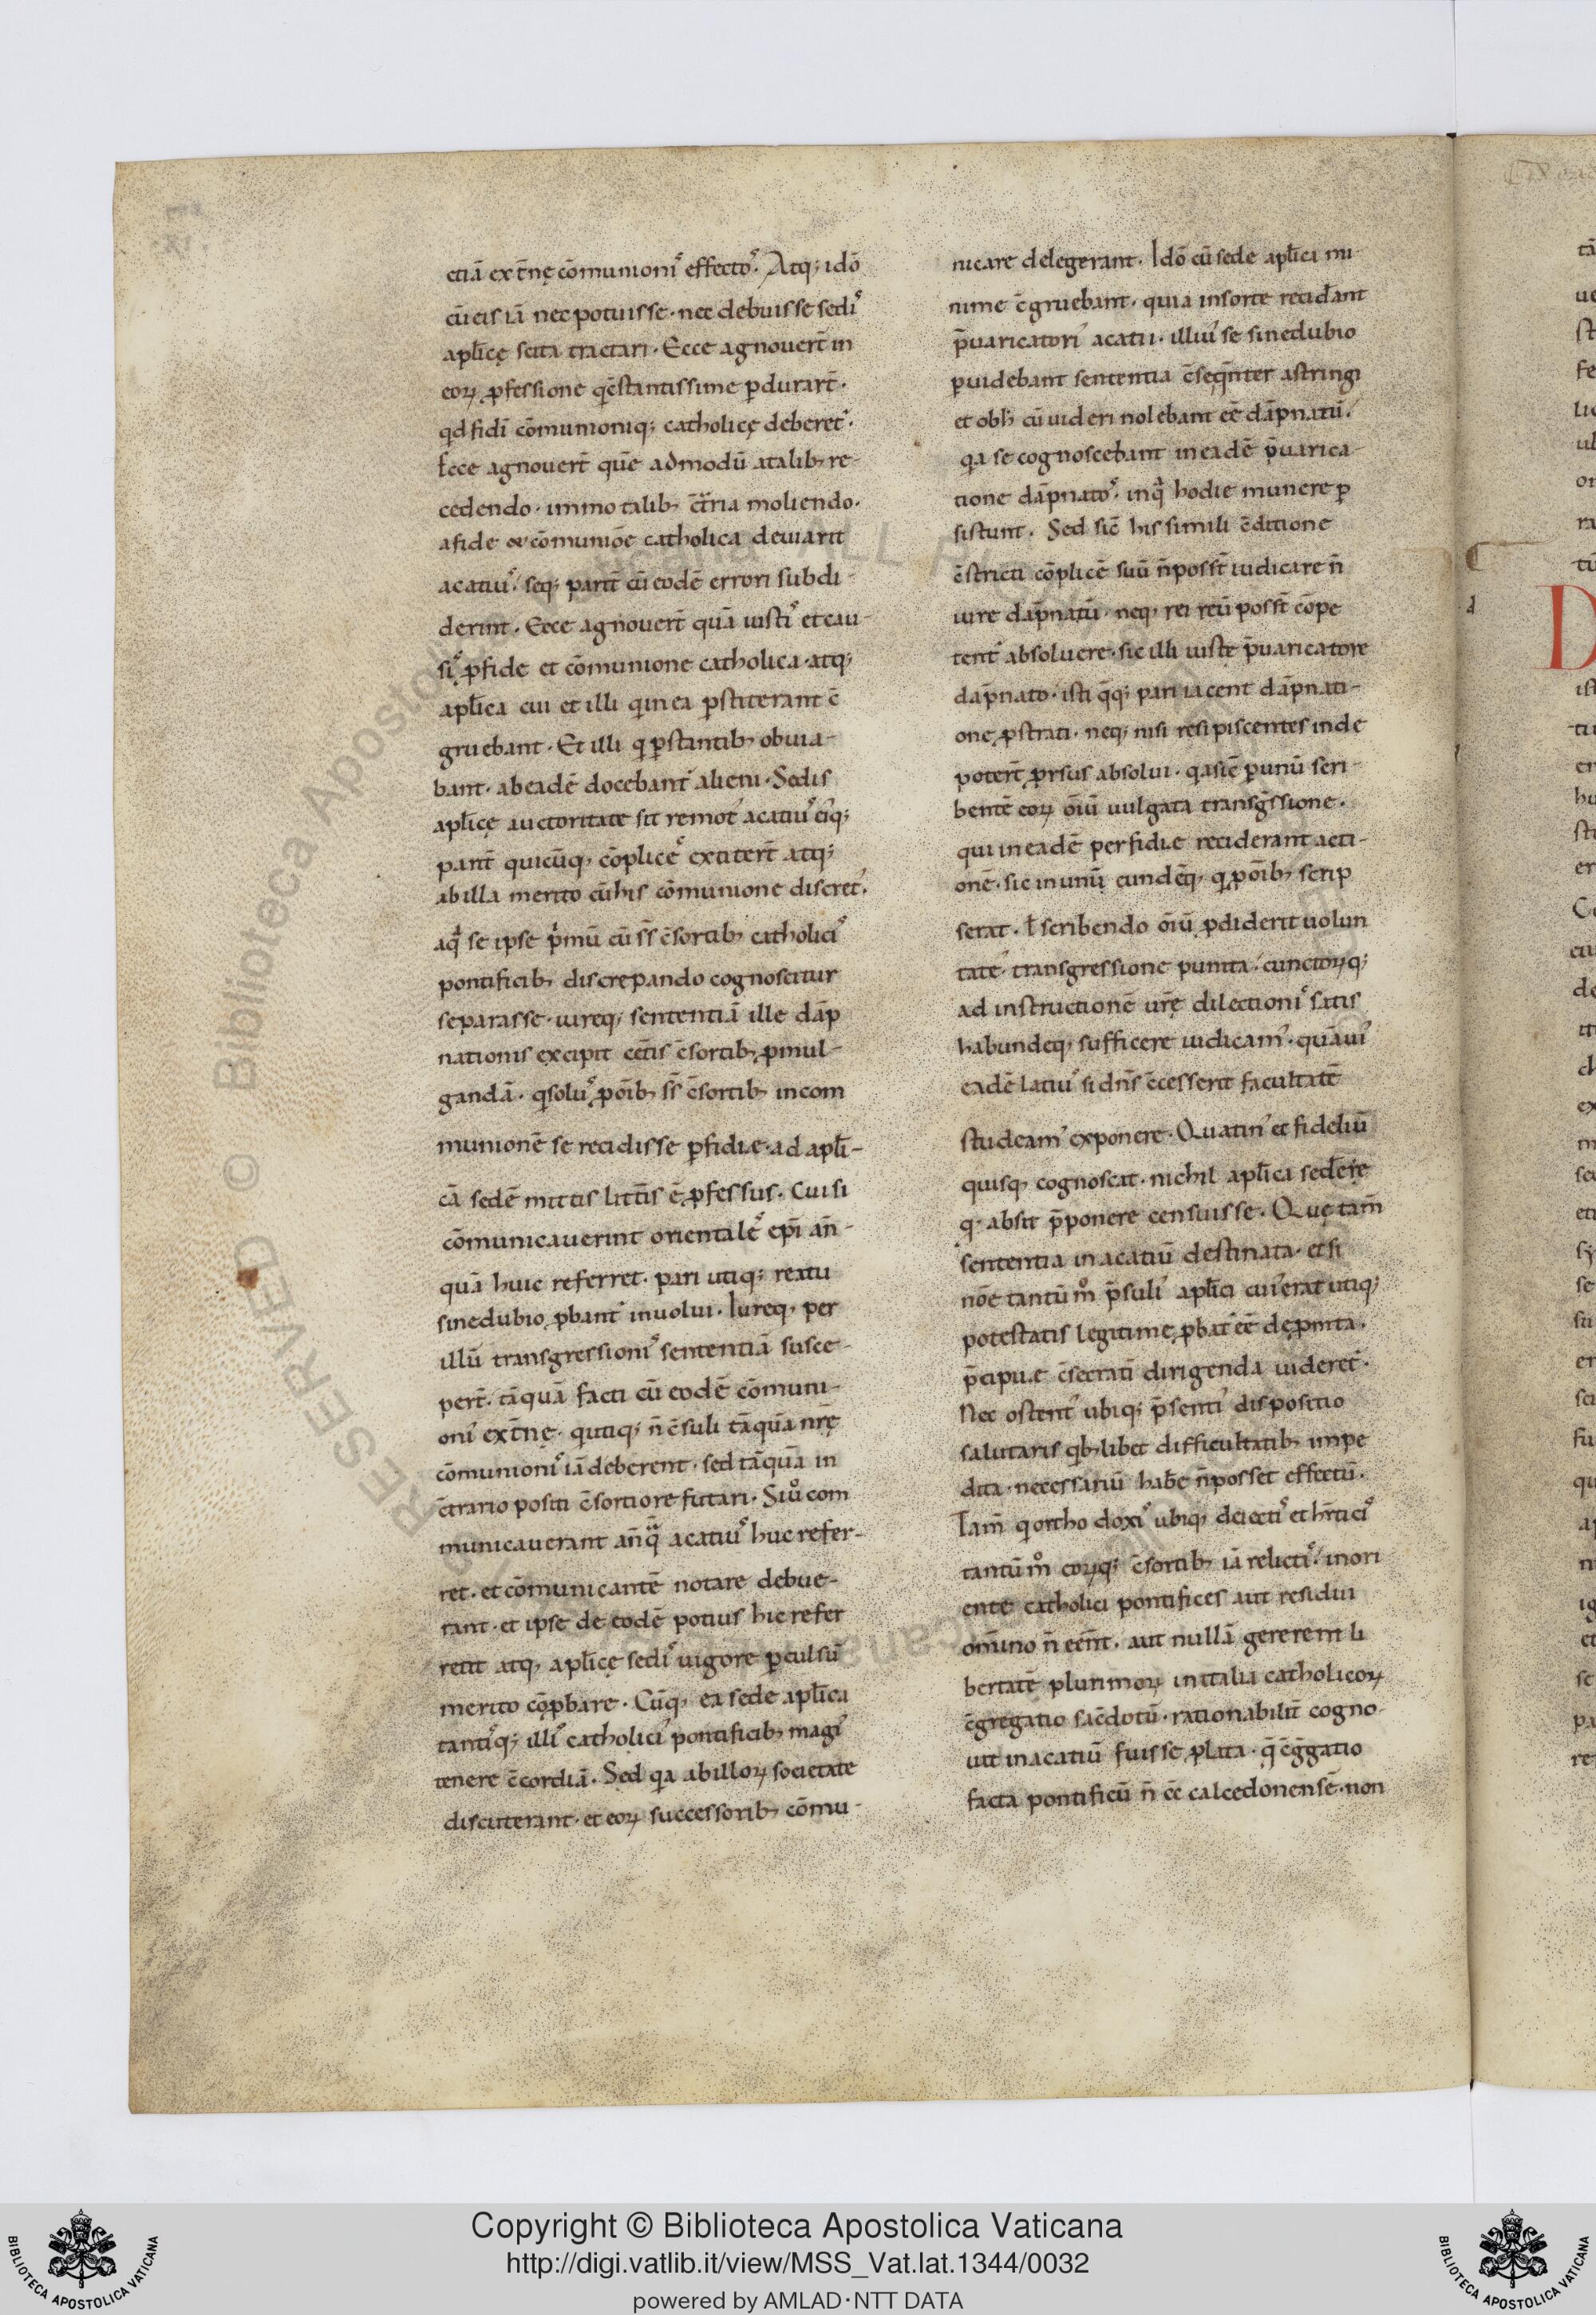 etiā ext̄nę cōmunioni᷒ effecto᷒. Atq; idō
cū eis iā nec potuisse. nec debuisse sedi᷒
apl̄icę scita tractari. Ecce agnouer̄t in
eoꝝ ꝓfessione q̄ c̄stantissime ꝑdurar̄t.
qd fidi cōmunioniq; catholicę deberet᷒.
Ecce agnouer̄t quē admodū a talibꝫ re-
cedendo. immo talibꝫ c̄tria moliendo.
a fide & cōmuniōe catholica deuiarit
acatiu᷒. seq; parit̄ cū eodē errori subdi-
derint. Ecce agnouer̄t quā iusti᷒ et cau
si᷒ ꝓ fide et cōmunione catholica. atq;
apl̄ica cui et illi qi in ea ꝑstiterant c̄
gruebant. Et illi q ꝑstantibꝫ obuia-
bant. ab eadē docebant᷒ alieni. Sedis
apl̄icę auctoritate sit remot᷒ acatiu᷒ ei᷒q;
parit̄ quicūq; cōplice᷒ extiter̄t atq;
ab illa merito cū his cōmunione discret᷒.
a q̄ se ipse p̄mū cū ss̄ c̄sortibꝫ catholici᷒
pontificibꝫ discrepando cognoscitur
separasse. iureq; sententiā ille dāp
nationis excipit cet̄is c̄sortibꝫ ꝓmul-
gandā. q solu᷒ ꝓ oīb; ss̄ c̄sortibꝫ in com
munionē se recidisse ꝑfidiae. ad apl̄i-
cā sedē mittis litt̄is ē ꝓfessus. Cui si
cōmunicauerint orientale᷒ epī an̄-
quā huic referret. pari utiq; reatu
sine dubio ꝓbant᷒ inuolui. Iureq; per
illū transgressioni᷒ sententiā susce-
per̄t. tāquā facti cū eodē cōmuni-
oni᷒ ext̄nę. qi utiq; n̄ c̄suli tāquā nr̄ę
cōmunioni᷒ iā deberent. sed tāquā in
c̄trario positi c̄sortio refutari. Siu° com
municauerant an̄q̄ acatiu᷒ huc refer-
ret. et cōmunicantē notare debue-
rant. et ipse de eodē potius hic refer
rent atq; apl̄icę sedi᷒ uigore ꝑculsū
merito cōꝓbare. Cūq; ea sede apl̄ica
tanti᷒q; illi᷒ catholici᷒ pontificibꝫ magi᷒
tenere c̄cordiā. Sed qa ab illoꝝ societate
disciuerant. et eoꝝ successoribꝫ cōmu-
nicare delegerant. Idō cū sede apl̄ica mi
nime c̄gruebant. quia in sorte recid̄ant
p̄uaricatori᷒ acatii. illiu᷒ se sine dubio
ꝑuidebant sententia c̄seq̄nter astringi
et ob h̄ cū uideri nolebant ēē dāpnatū.
qa se cognoscebant in eadē p̄uarica-
tione dāpnato᷒. in q̄ hodie munere ꝑ
sistunt. Sed sic̄ his simili c̄ditione
c̄stricti cōplicē suū n̄ poss̄t iudicare n̄
iure dāpnatū. neq; rei reū poss̄t cōpe
tent᷒ absoluere. sic illi iuste p̄uaricatore
dap̄nato. isti q̄q; pari iacent dāpnati-
one ꝓstrati. neq; nisi resipiscentes inde
poter̄t ꝓrsus absolui. q a sic̄ ꝑ unū scri-
bentē eoꝝ oīū uulgata transḡssione.
qui in eadē perfidiae reciderant acti-
onē. sic in unū eundēq; q ꝓ oīb; scrip
serat. ł scribendo oīū ꝓdiderit uolun
tatē. transgressione punita. cunctoꝝq;
ad instructionē ur̄ę dilectioni᷒ satis
habundeq; sufficere iudicam᷒. quāui᷒
eadē latiu᷒ si dn̄s c̄cesserit facultatē
studeam᷒ exponere. Quatin᷒ et fideliū
quisq; cognoscat. nichil apl̄ica sedēre
q. absit p̄ponere censuisse. Quę tam̄
sententia in acatiū destinata. etsi
noīe tantūm° p̄suli᷒ apl̄ici cui᷒ erat utiq;
potestatis legitimę ꝓbat᷒ ēē deꝓmta.
p̄cipuae c̄secrati dirigenda uideret᷒.
Nec ostent᷒ ubiq; p̄senti᷒ dispositio
salutaris qbꝫlibet difficultatibꝫ impe
dita. necessariū habē n̄ posset effectū.
Tam̄ q orthodoxi᷒ ubiq; deiecti᷒ et hr̄tici᷒
tantūm° eoꝝq; c̄sortibꝫ iā relicti᷒. in ori
ente catholici pontifices aut residui
om̄ino n̄ eēnt. aut nullā gererem li
bertatē plurimoꝝ in italia catholicoꝝ
c̄gregatio sac̄dotū. rationabilit̄ cogno-
uit in acatiū fuisse ꝓlata. q̄ c̄ḡgatio
facta pontificū n̄ c̄ calcedonensē. non
Copyright © Biblioteca Apostolica Vaticana
http://digi.vatlib.it/view/MSS_Vat.lat.1344/0032
powered by AMLAD·NTT DATA